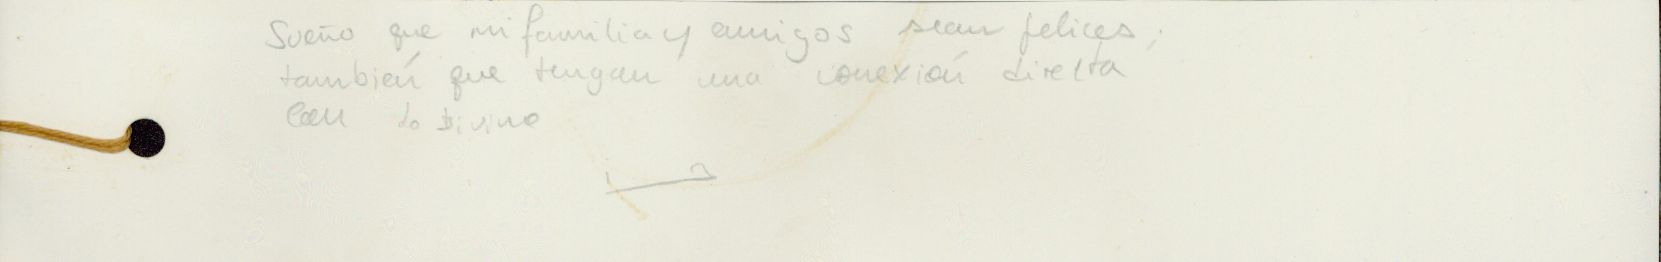 Sueño que mi familia y amigos sean felices,
también que tengan una conexión directa
con lo Divino